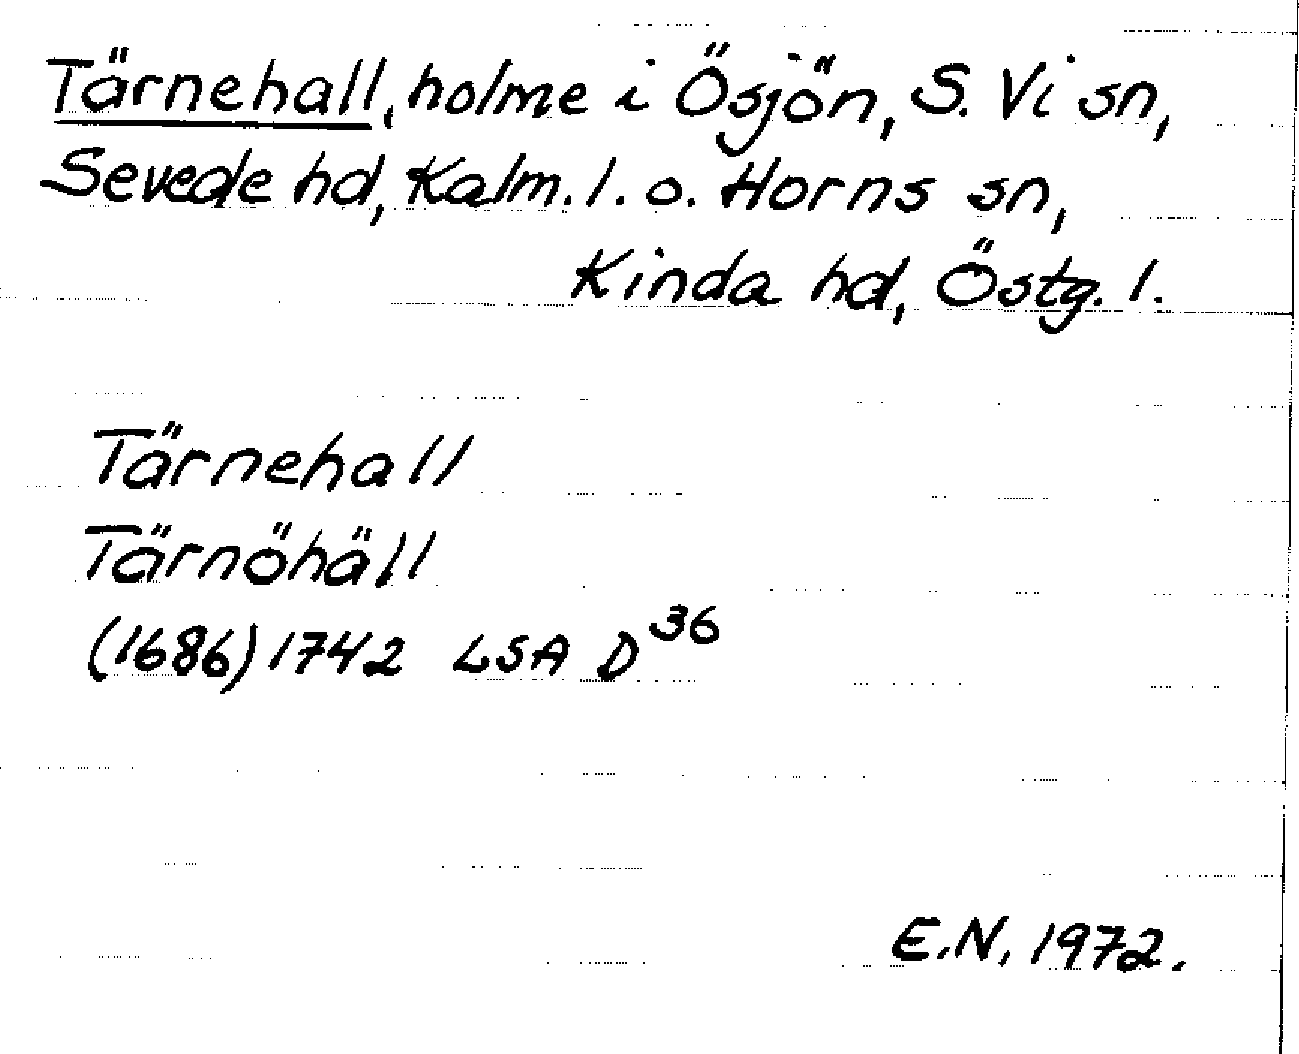 Tärnehall, holme i Ösjön, S. Vi sn,
Sevede hd, Kalm. l. o. Horns sn,
Kinda hd, Östg. l.
Tärnehall
Tärnöhäll
(1686) 1742 LSA D 36
E.N. 1972.